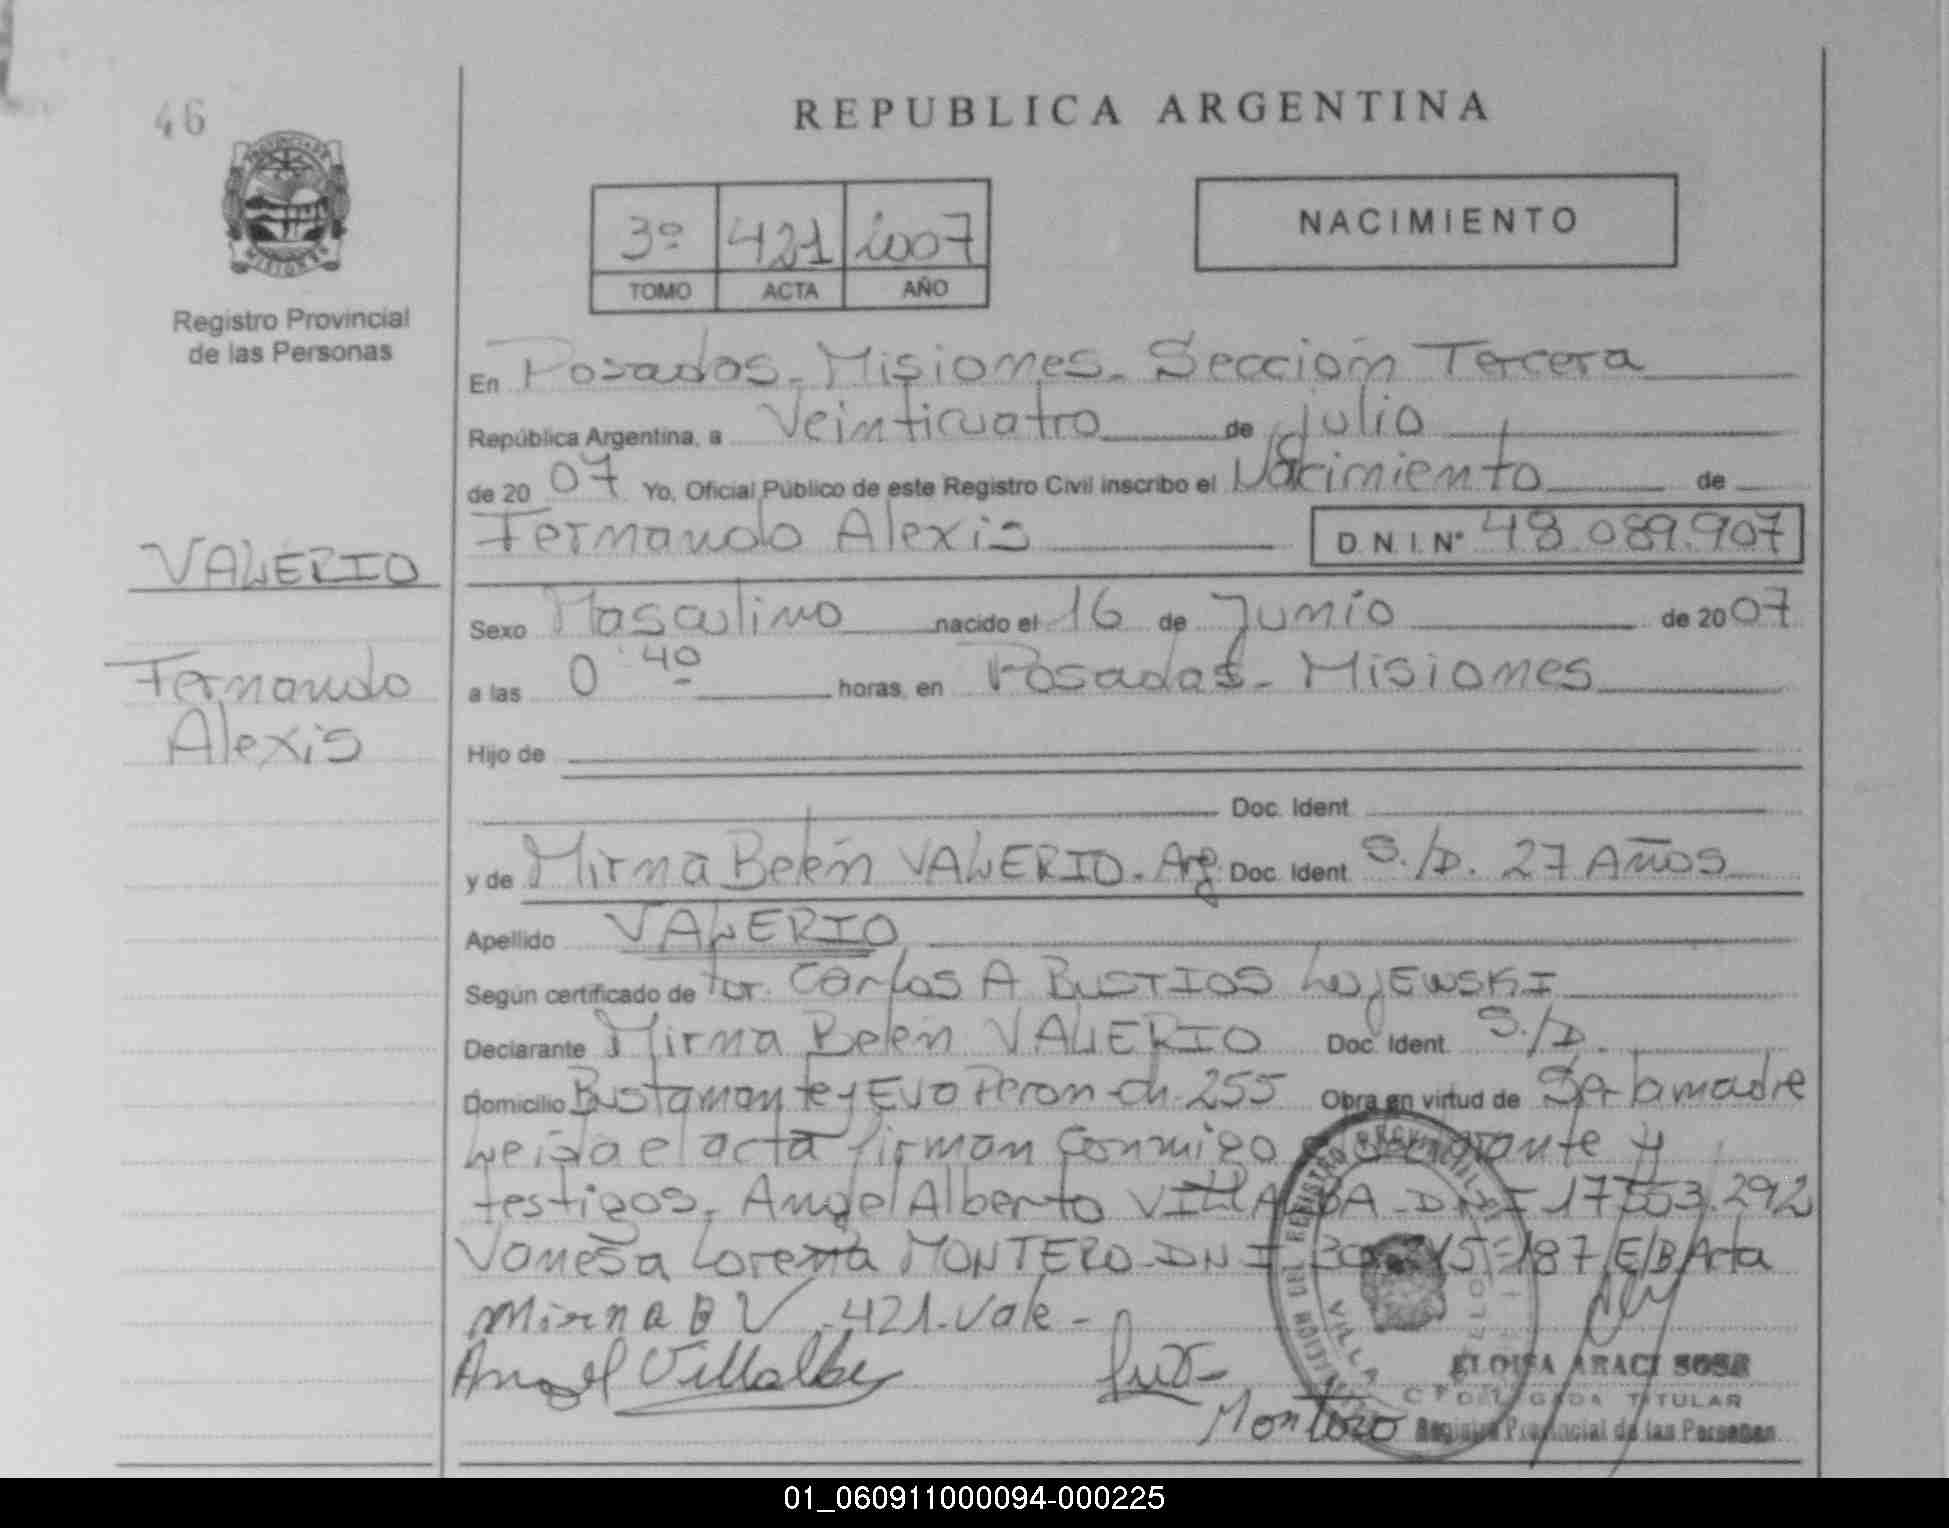 46
REPUBLICA ARGENTINA
PROVINCIA DE
MISIONES
Registro Provincial
de las Personas
3º 421 2007
TOMO ACTA AÑO
NACIMIENTO
En Posadas - Misiones - Sección Tercera
República Argentina, a Veinticuatro de julio
de 20 07 Yo, Oficial Público de este Registro Civil inscribo el Nacimiento de
Fernando Alexis D.N.I. Nº 48.089.907
VALERIO
Fernando
Alexis
Sexo Masculino nacido el 16 de Junio de 20 07
a las 0 40 horas, en Posadas - Misiones
Hijo de
Doc. Ident.
y de Mirna Belén VALERIO - Arg. Doc. Ident. S./D. 27 Años
Apellido VALERIO
Según certificado de Carlos A BUSTIOS
Declarante Mirna Belén VALERIO Doc. Ident. S./D.
Domicilio Bustamante y Eva Peron - Ch. 255 Obra en virtud de Ser la madre
Leida el acta firman conmigo y
testigos, Angel Alberto VILLALBA - DNI 17.553.292
Vanesa Lorena MONTERO - DNI 187 E/B Acta
Mirna B V - 421 - Vale -
Angel Villalba
Montero
ELOISA ARACI SOSA
DELEGADA TITULAR
Registro Provincial de las Personas
01_060911000094-000225